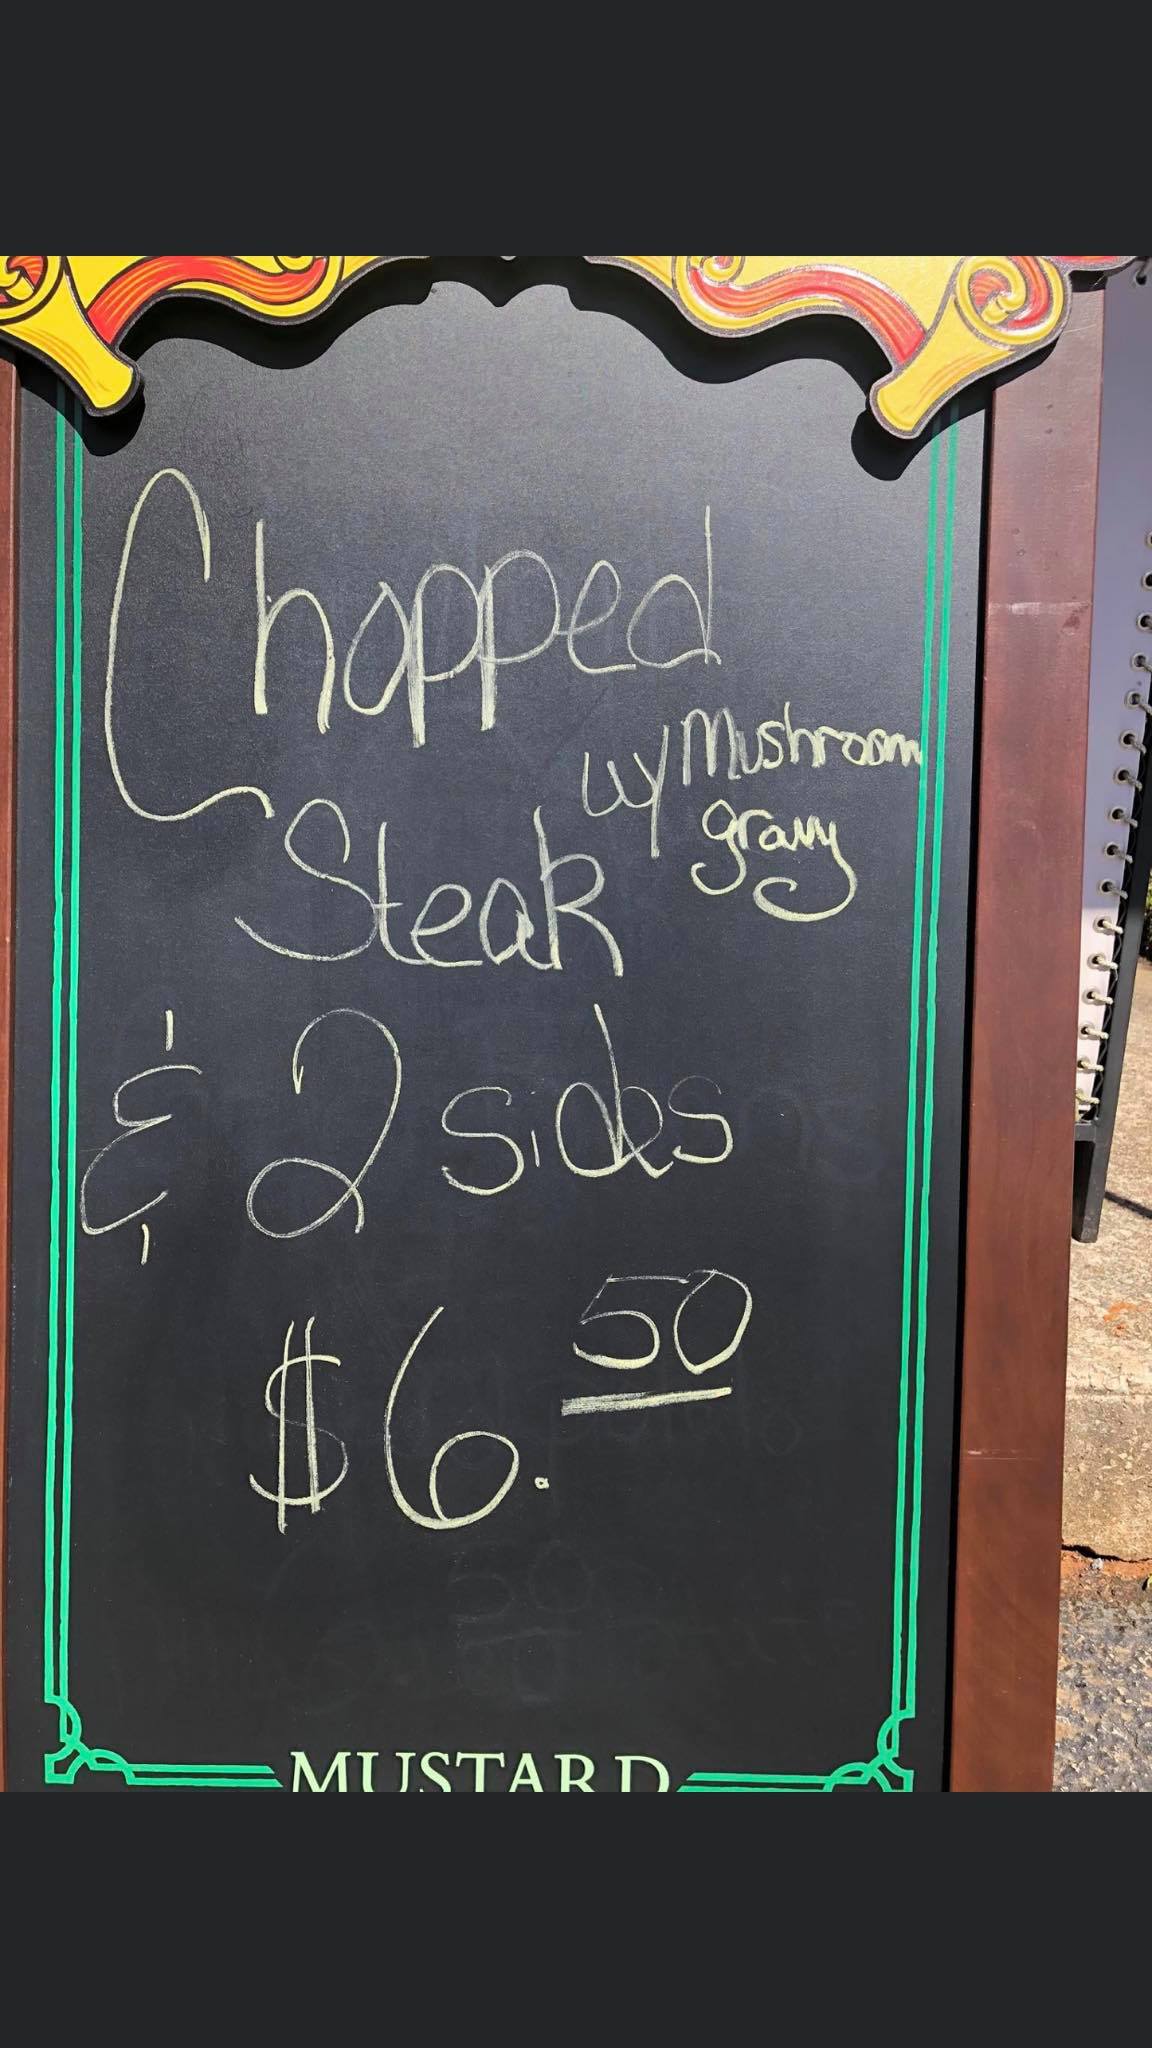 Chopped
w/ Mushroom
gravy
Steak
& 2 sides
$6.50
MUSTARD